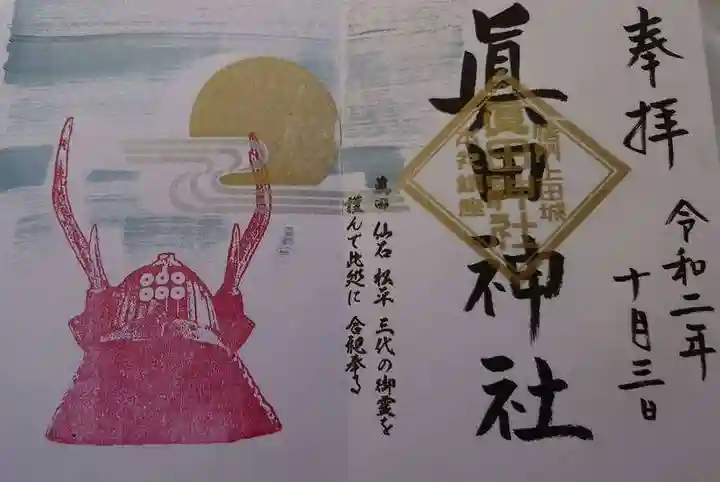 奉拝
令和二年
十月三日
眞田神社
信州上田城
眞田神社
眞田 仙石 松平 三代の御霊を
謹んで此処に 合祀奉る